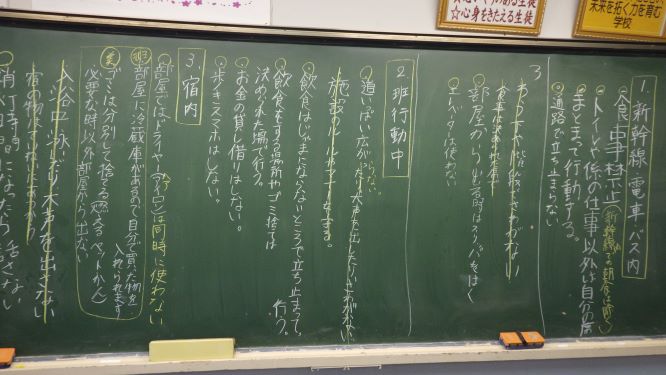 ☆心身をきたえる生徒
未来を拓く力を育む
学校
1. 新幹線・電車・バス内
○食事禁止(新幹線での朝食は可)
○トイレや係の仕事以外は自分の席
○まとまって行動する。
○通路で立ち止まらない
3
食事は決められた席で
○部屋から出る時はスリッパをはく
○エレベーターは使わない
2. 班行動中
○道いっぱい広がったり大声を出したりしさわがない
施設のルールやマナーを守る。
○飲食はじゃまにならないところで立ち止まって、行う。
○飲食をする場所やゴミ捨ては
決められた場で行う。
○お金の貸し借りはしない。
○歩きスマホはしない。
3. 宿内
○部屋ではドライヤー(アイロン)は同時に使わない
部屋に冷蔵庫があるので自分で買った物を
入れられます
ゴミは分別して捨てる(燃える、ペット、かん)
必要な時以外部屋から出ない
大声を出さない
宿の物
消灯時間になったら話さない